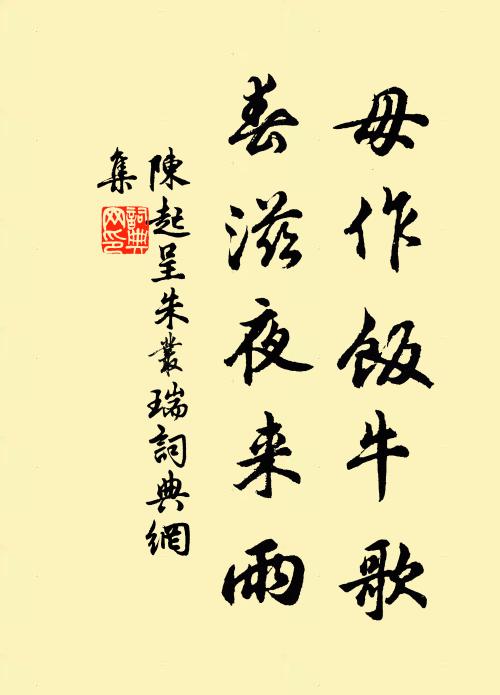 毋作飯牛歌
春滋夜来雨
陳起呈朱叢瑞詞典網
集
詞典网印